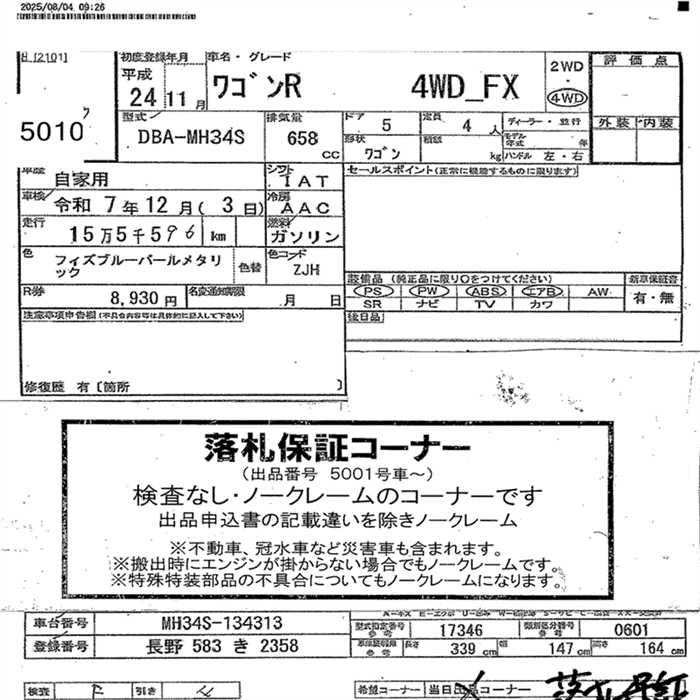 2025/08/04 09:26
[2101]
5010
初度登録年月
平成
24 11 月
車名・グレード
ワゴンR 4WD_FX
2WD
・
4WD
評価点
外装 内装
型式
DBA-MH34S
排気量
658
CC
ドア
5
定員
4 人
形状
ワゴン
積載
kg
ディーラー・並行
モデル年式
年
ハンドル 左・右
車歴
自家用
シフト
IAT
車検
令和 7年 12月( 3日)
冷房
AAC
走行
15万5千596 km
燃料
ガソリン
色
フィズブルーパールメタリ
ック
色替
色コード
ZJH
R券
8,930 円
名変通知期限
月 日
注意事項申告欄(不具合内容等は具体的に記入して下さい)
修復歴 有〔箇所 〕
セールスポイント(正常に機能するものに限ります)
装備品 (純正品に限り○をつけてください)
新車保証書
PS PW ABS エアB AW
有・無
SR ナビ TV カワ
後日品
落札保証コーナー
(出品番号 5001号車～)
検査なし・ノークレームのコーナーです
出品申込書の記載違いを除きノークレーム
※不動車、冠水車など災害車も含まれます。
※搬出時にエンジンが掛からない場合でもノークレームです。
※特殊特装部品の不具合についてもノークレームになります。
車台番号 MH34S-134313
登録番号 長野 583 き 2358
型式指定番号
参考
17346
類別区分番号
参考
0601
長さ 339 cm 幅 147 cm 高さ 164 cm
検査
引き
希望コーナー 当日出品コーナー